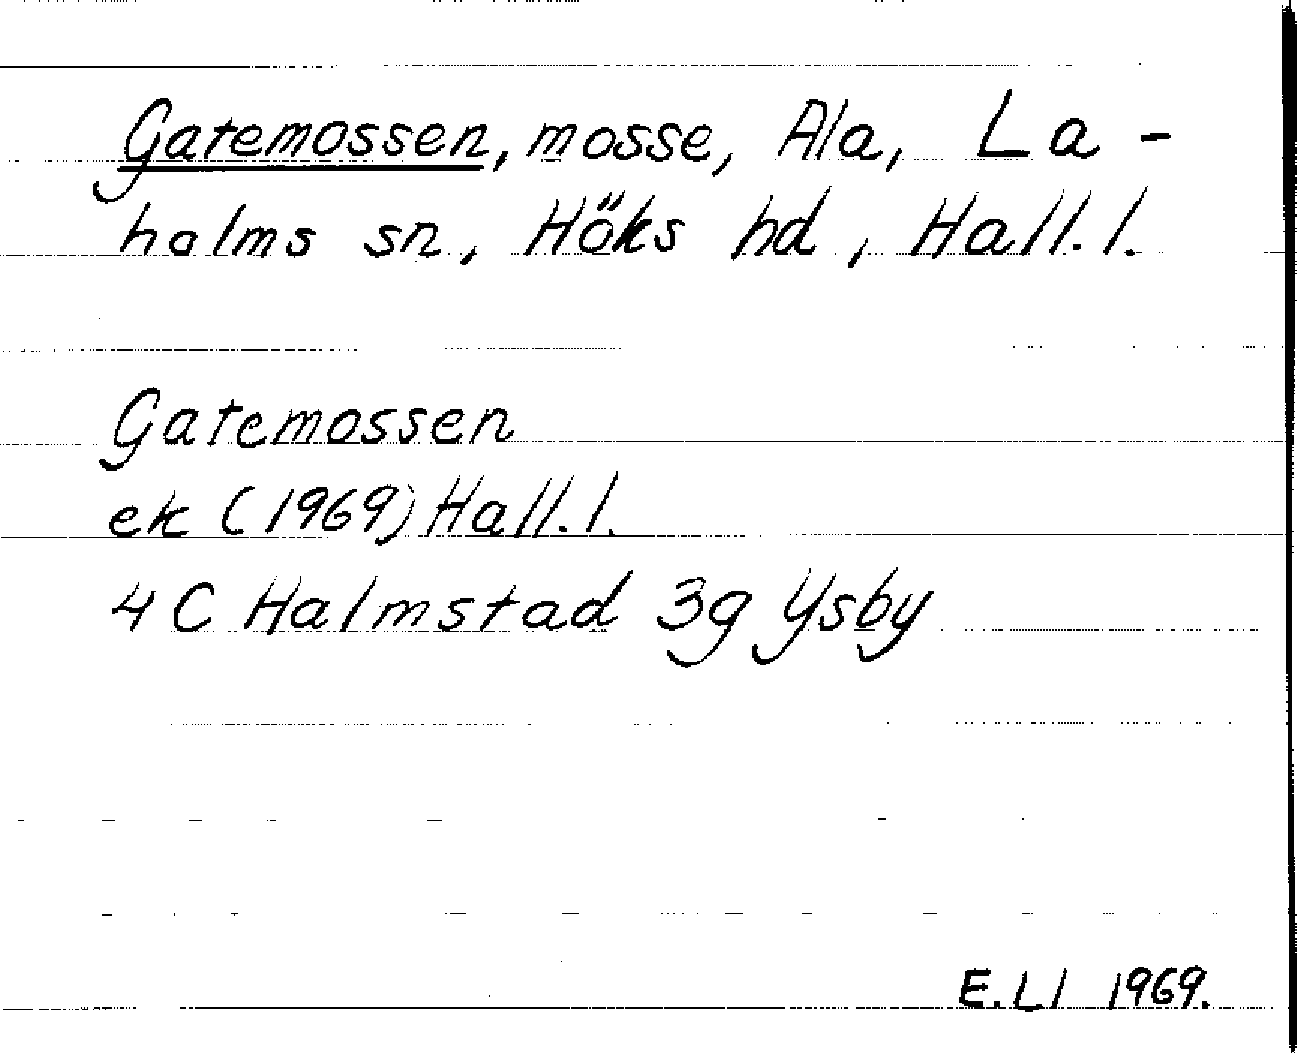 Gatemossen, mosse, Ala, La-
holms sn, Höks hd, Hall. l.
Gatemossen
ek (1969) Hall. l.
4 C Halmstad 3g Ysby
E. Ll 1969.